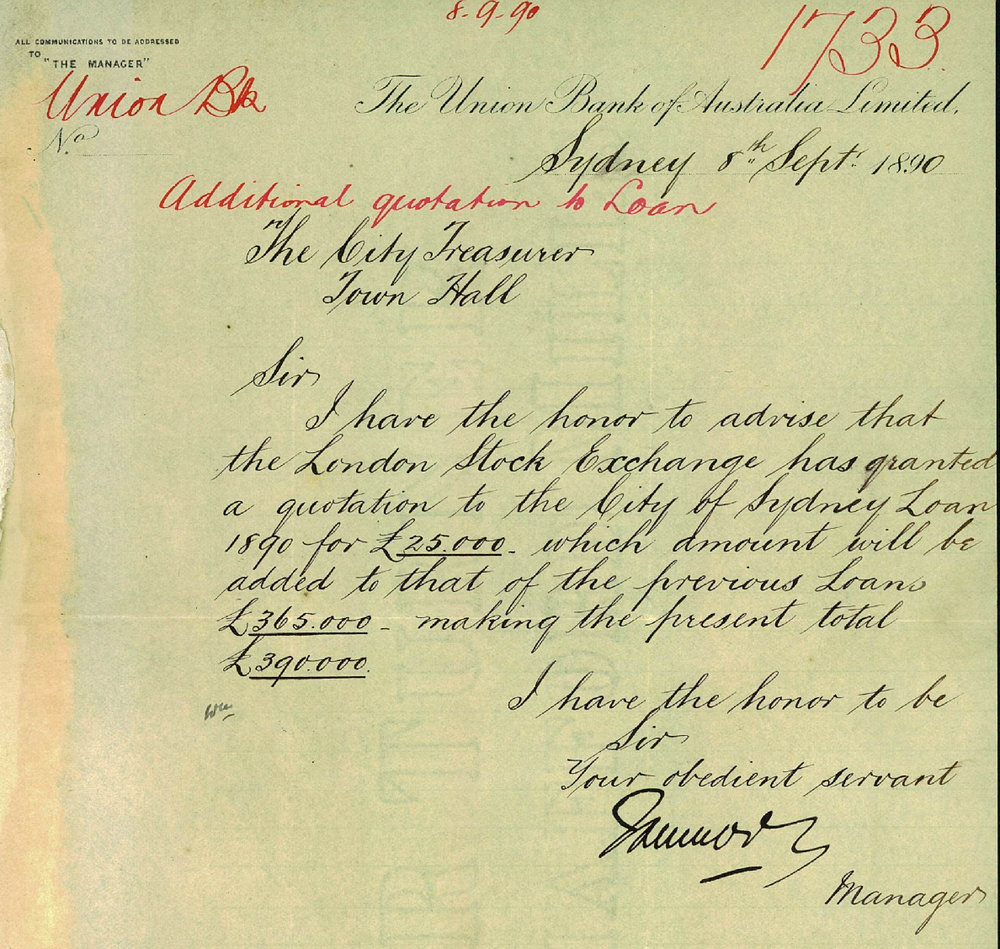 8-9-90
1733
ALL COMMUNICATIONS TO BE ADDRESSED
TO "THE MANAGER"
Union Bk
The Union Bank of Australia Limited,
No
Sydney 8th Sept. 1890
Additional quotation to Loan
The City Treasurer
Town Hall
Sir
I have the honor to advise that
the London Stock Exchange has granted
a quotation to the City of Sydney Loan
1890 for £25.000 - which amount will be
added to that of the previous Loans
£365.000 - making the present total
£390.000.
I have the honor to be
Sir
Your obedient servant
Manager